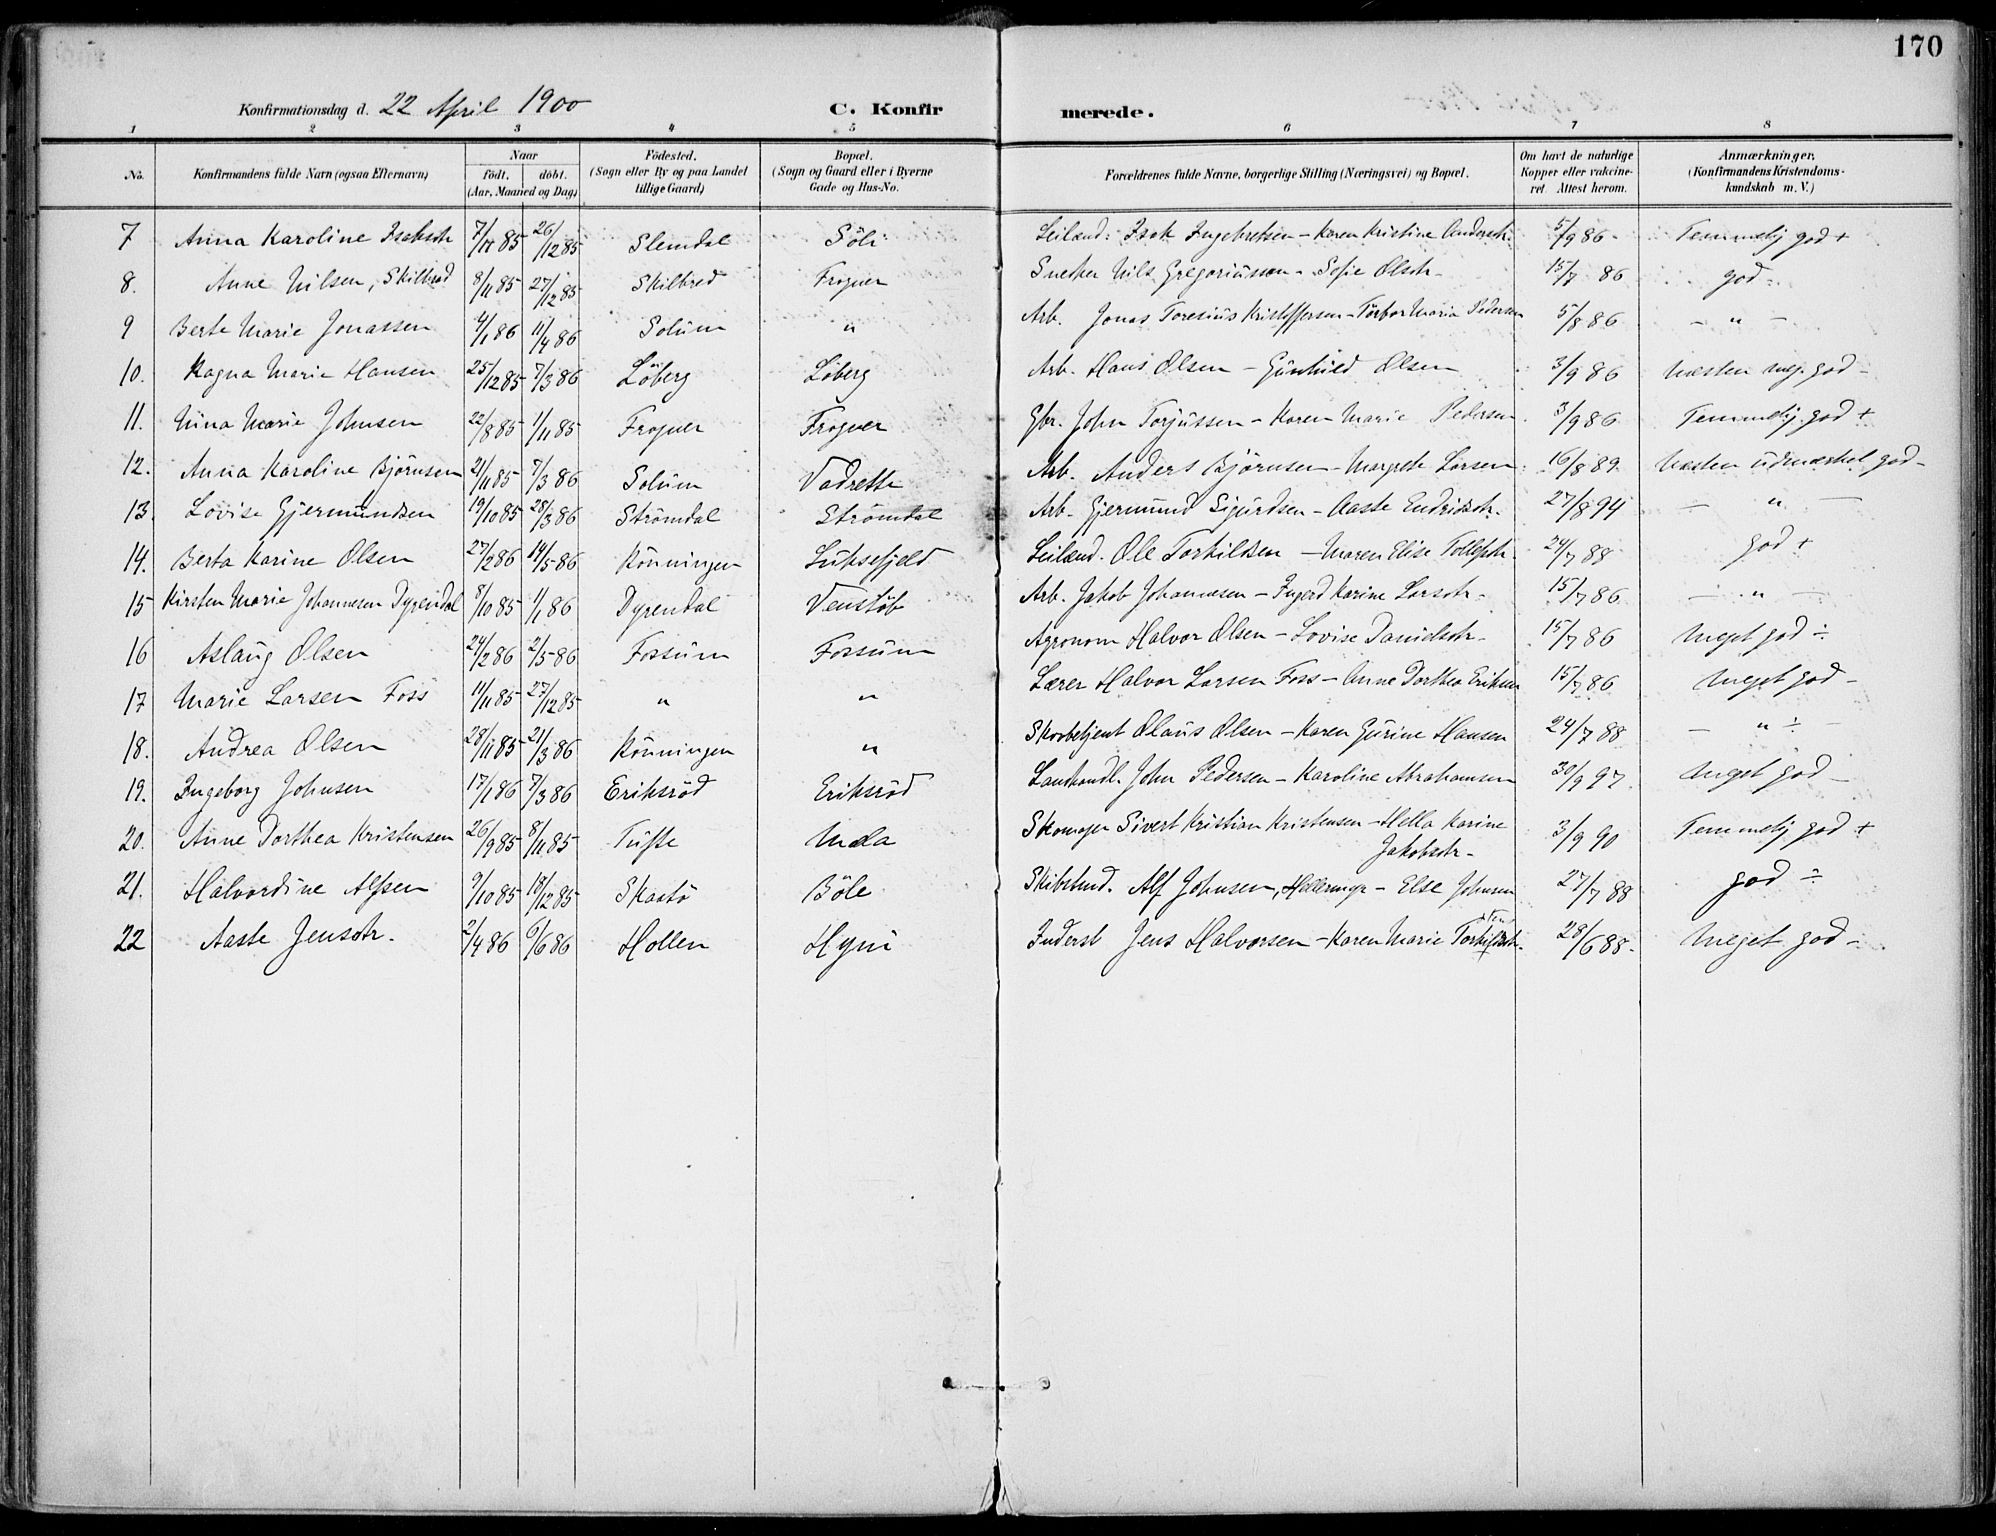 170
Konfirmationsdag d. 22 April 1900 C. Konfirmerede.
1 2 3 4 5 6 7 8
No. Konfirmandens fulde Navn (ogsaa Efternavn) Naar födt. döbt. (Aar, Maaned og Dag) Födested. (Sogn eller By og paa Landet tillige Gaard) Bopæl. (Sogn og Gaard eller i Byerne Gade og Hus-No. Forældrenes fulde Navne, borgerlige Stilling (Næringsvei) og Bopæl. Om havt de naturlige Kopper eller vakcineret. Attest herom. Anmærkninger. (Konfirmandens Kristendomskundskab m. V.)
7 Anna Karoline Isaksdtr 7/11 85 26/12 85 Slemdal Söli Leilænd. Isak Ingebretsen - Karen Kristine Andersdtr. 5/9 86 Temmelig god +
8. Anne Nilsen, Skilbred 8/11 85 27/12 85 Skilbred Frogner Snekker Nils Gregoriussen - Sofie Olsdtr - 15/7 86 god -
9 Berte Marie Jonassen 4/1 86 11/4 86 Solum " Arb. Jonas Toresius Kristoffersen - Torbor Maria Pedersen 5/8 86 - " -
10. Ragna Marie Hansen 25/12 85 7/3 86 Löberg Löberg Arb. Hans Olsen - Gunhild Olsen 3/9 86 Næsten meg. god -
11. Nina Marie Johnsen 22/8 85 1/11 85 Frogner Frogner Gbr. John Torjussen - Karen Marie Pedersen 3/9 86 Temmelig god +
12. Anna Karoline Björnsen 21/11 85 7/3 86 Solum Vadrette Arb. Anders Björnsen - Margrete Larsen 16/8 89 Næsten udmærket god -
13. Lovise Gjermundsen 19/10 85 28/3 86 Strömdal Strömdal Arb. Gjermund Sigurdsen - Aaste Endridsdtr. 27/8 94 - " -
14. Berta Karine Olsen 27/2 86 14/5 86 Rönningen Luksefjeld Leilænd. Ole Torkildsen - Maren Elise Tollefsdtr. 24/7 88 god +
15 Kirsten Marie Johannesen Dyrendal 8/10 85 1/1 86 Dyrendal Venstöb Arb. Jakob Johannesen - Ingerd Karine Larsdtr - 15/7 86 - " -
16 Aslaug Olsen 24/2 86 2/5 86 Fossum Fossum Agronom Halvor Olsen - Lovise Danielsdtr - 15/7 86 Meget god ÷
17 Marie Larsen Foss 11/11 85 27/12 85 " " Lærer Halvor Larsen Foss - Anne Dorthea Eriksen 15/7 86 Meget god -
18. Andrea Olsen 28/11 85 21/3 86 Rönningen " Skovbetjent Olaus Olsen - Karen Gurine Hansen 24/7 88 - " ÷ -
19. Ingeborg Johnsen 17/1 86 7/3 86 Eriksröd Eriksröd Landhandl. John Pedersen - Karoline Abrahamsen 30/9 97 Meget god -
20. Anne Dorthea Kristensen 26/9 85 8/11 85 Tufte Mæla Skomager Sivert Kristian Kristensen - Hella Karine 3/9 90 Temmelig god +
Jakobsdtr -
21. Halvordine Alfsen 9/10 85 18/12 85 Skaatö Böle Skibstmd. Alf Johnsen, Hellermyr - Else Johnsen 27/7 88 god ÷
22 Aaste Jensdtr. 2/4 86 6/6 86 Hollen Hyni Inderst Jens Halvorsen - Karen Marie 28/6 88 - Meget god -